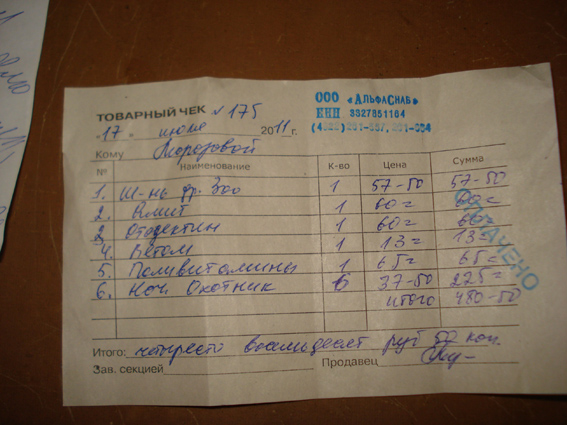 ООО «АльфаСнаб»
ТОВАРНЫЙ ЧЕК №175
ИНН 3327851164
17 июне 2011 г.
Кому Морозовой
№ Наименование К-во Цена Сумма
1. Ш-нь фр. Зоо 1 57-50 57-50
2. Амит 1 60= 60=
3 Отодектин 1 60= 60=
4. Ветом 1 13= 13=
5. Поливитамины 1 65= 65=
6. Ноч. Охотник 6 37-50 225=
итого 480-50
ОПЛАЧЕНО
Итого: четыреста восемьдесят руб 50 коп.
Зав. секцией Продавец